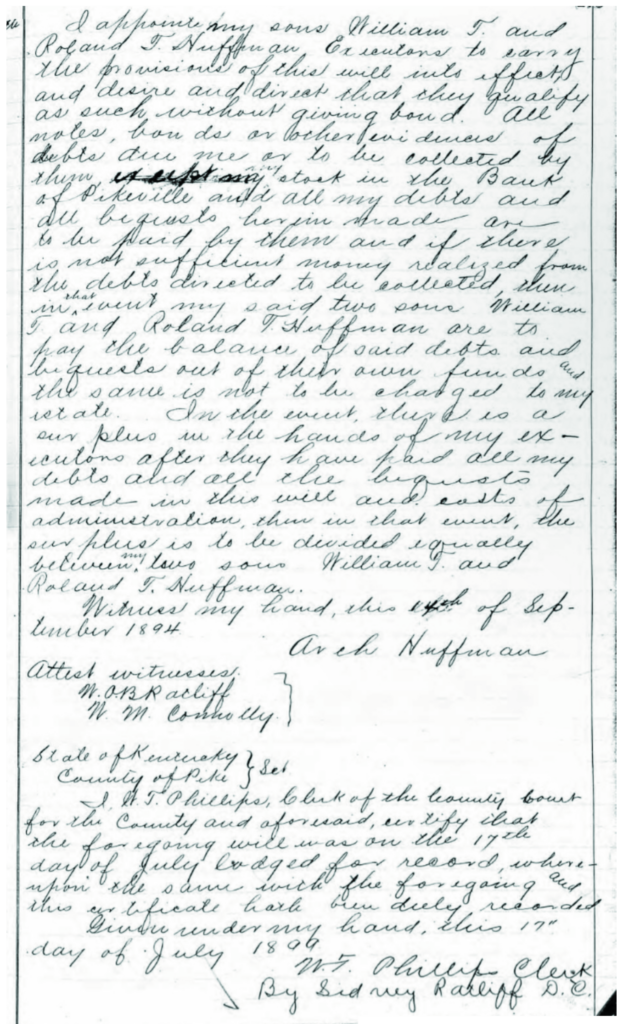 I appoint my sons William T. and
Roland T. Huffman Executors to carry
the provisions of this will into effect,
and desire and direct that they qualify
as such without giving bond. All
notes, bonds or other evidences of
debts due me or to be collected by
them except my stock in the Bank
of Pikeville and all my debts and
all bequests herein made are
to be paid by them and if there
is not sufficient money realized from
the debts directed to be collected, then
in that event my said two sons William
T. and Roland T. Huffman are to
pay the balance of said debts and
bequests out of their own funds and
the same is not to be charged to my
estate. In the event, there is a
surplus in the hands of my ex-
ecutors after they have paid all my
debts and all the bequests
made in this will and costs of
administration, then in that event, the
surplus is to be divided equally
between my two sons William T. and
Roland T. Huffman.
Witness my hand, this 14th of Sep-
tember 1894
Arch Huffman
Attest witnesses.
W.O.B Ratliff
W. M. Connolly.
State of Kentucky
County of Pike } Sct
I, W.T. Phillips, Clerk of the County Court
for the County and aforesaid, certify that
the foregoing will was on the 17th
day of July lodged for record, where-
upon the same with the foregoing and
this certificate hath been duly recorded
Given under my hand, this 17"
day of July 1899
W.T. Phillips Clerk
By Sidney Ratliff D.C.